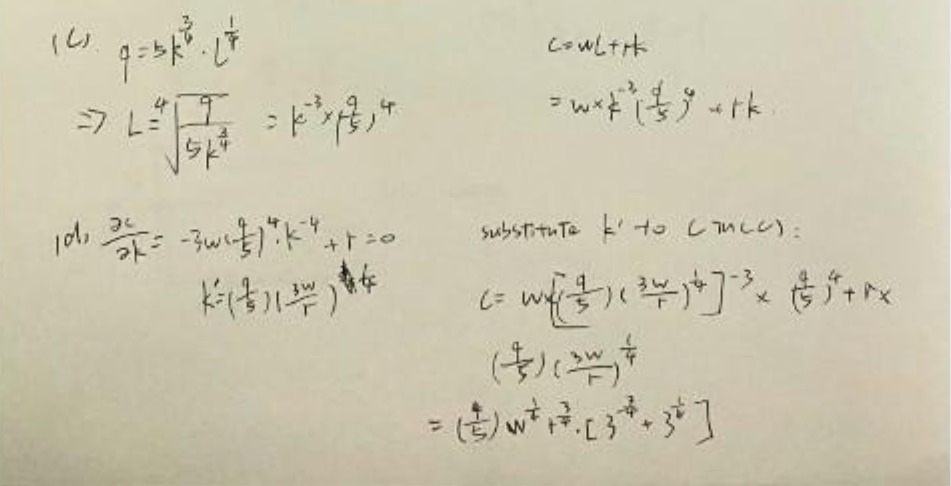 (c) q=5k^{3/4}·L^{1/4}
=> L=⁴√(q/5k^{3/4}) = k^{-3}×(q/5)^4
C=wL+rk
=w×k^{-3}(q/5)^4+rk.
(d) ∂c/∂k= -3w(q/5)^4·k^{-4}+r=0
k'=(q/5)(3w/r)^{1/4}
substitute k' to C in (c):
C= w×[(q/5)(3w/r)^{1/4}]^{-3}× (q/5)^4+r×
(q/5)(3w/r)^{1/4}
=(q/5)w^{1/4}r^{3/4}·[3^{-3/4}+3^{1/4}]